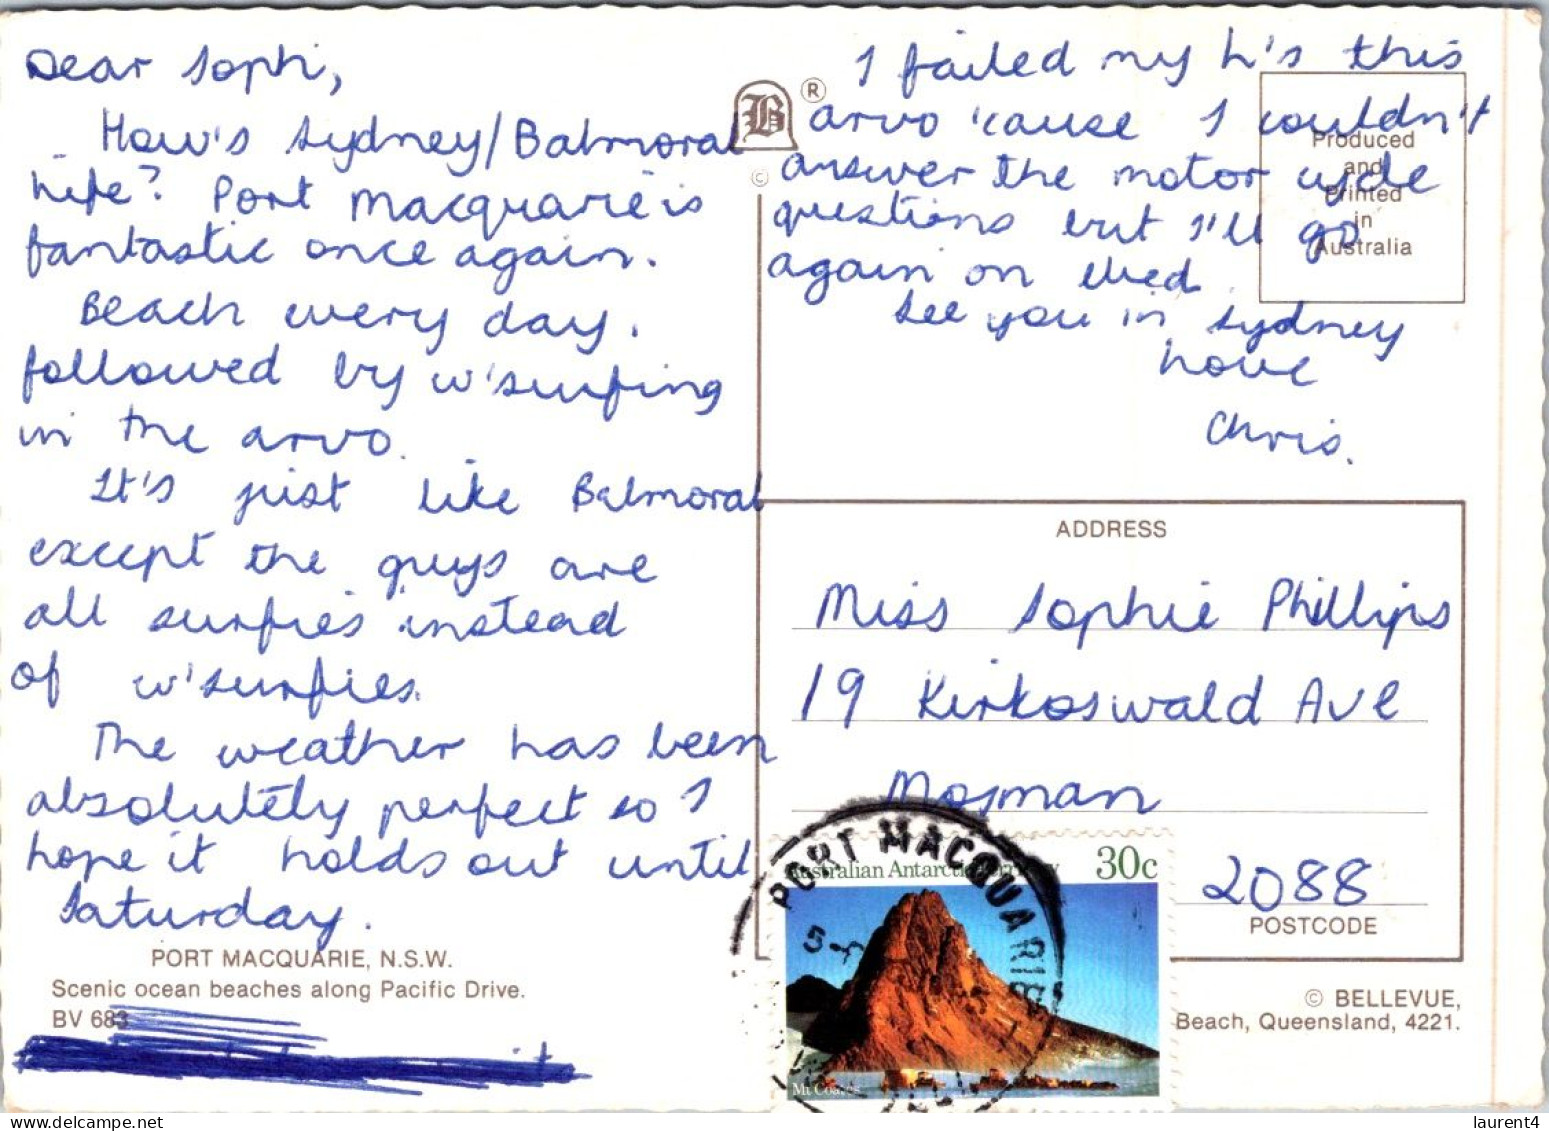 Dear Soph,
How's Sydney/Balmoral
life? Port Macquarie is
fantastic once again.
Beach every day,
followed by w'surfing
in the arvo.
It's just like Balmoral
except the guys are
all surfies instead
of w'surfies.
The weather has been
absolutely perfect so I
hope it holds out until
Saturday.
PORT MACQUARIE, N.S.W.
Scenic ocean beaches along Pacific Drive.
BV 683
I failed my L's this
arvo 'cause I couldn't
answer the motor cycle
questions but I'll go
again on Wed.
See you in Sydney
Love
Chris.
B ®
©
Produced
and
Printed
in
Australia
ADDRESS
Miss Sophie Phillips
19 Kirkoswald Ave
Mosman
2088
POSTCODE
PORT MACQUARIE
Australian Antarctic 30c
Mt Coates
© BELLEVUE,
Beach, Queensland, 4221.
laurent4